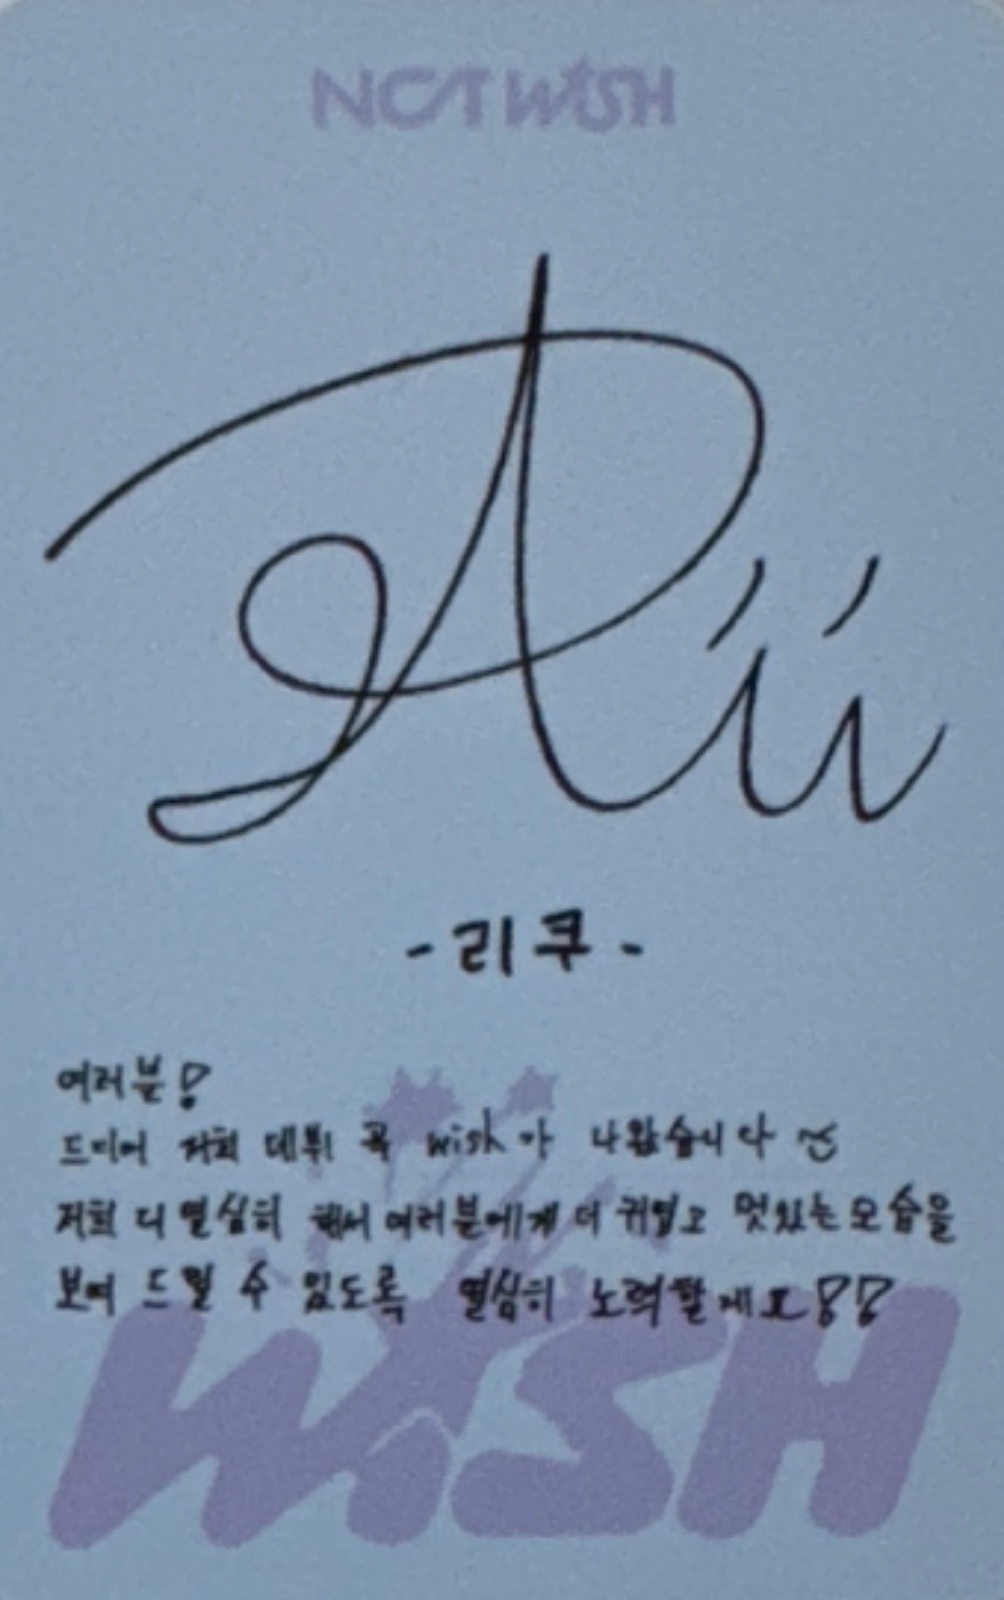 NCT WISH
- 리쿠 -
여러분!
드디어 저희 데뷔 곡 wish가 나왔습니다
저희 더 열심히 해서 여러분에게 더 귀엽고 멋있는 모습을
보여 드릴 수 있도록 열심히 노력할게요!!
WISH